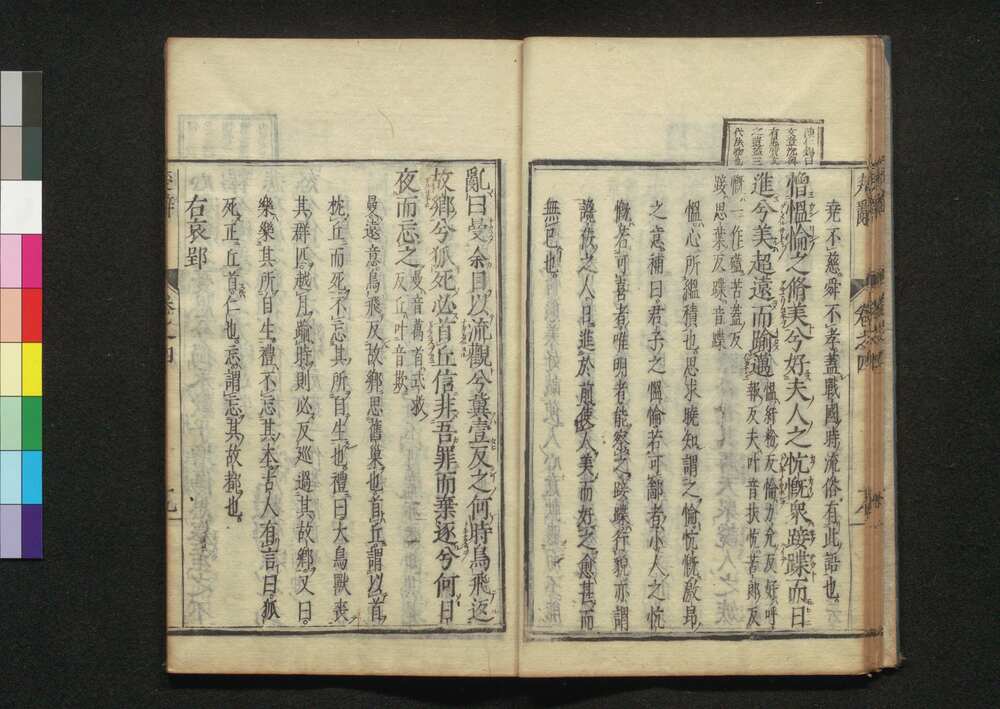 堯不慈舜不孝蓋戰國時流俗有此語也
憎慍惀之脩美兮好夫人之忼慨衆踥蹀而日
進兮美超遠而踰邁慍紆粉反惀力允反好呼
報反夫叶音扶忼苦郎反
慨一作磕苦蓋反
踥思葉反蹀音蝶
慍心所縕積也思求曉知謂之惀忼慨激昂
之意補曰君子之慍惀若可鄙者小人之忼
慨者可喜者唯明者能察之踥蹀行貌亦謂
譖佞之人日進於前使人美而好之愈甚而
無已也
楚辭
卷之四
亂曰曼余目以流觀兮冀壹反之何時鳥飛返
故鄉兮狐死必首丘信非吾罪而棄逐兮何日
夜而忘之曼音萬首式救
反丘叶音欺
曼遠意鳥飛反故鄉思舊巢也首丘謂以首
枕丘而死不忘其所自生也禮曰大鳥獸喪
其群匹越月踰時則必反巡過其故鄉又曰
樂樂其所自生禮不忘其本古人有言曰狐
死正丘首仁也忘謂忘其故都也
右哀郢
楚辭
卷之四